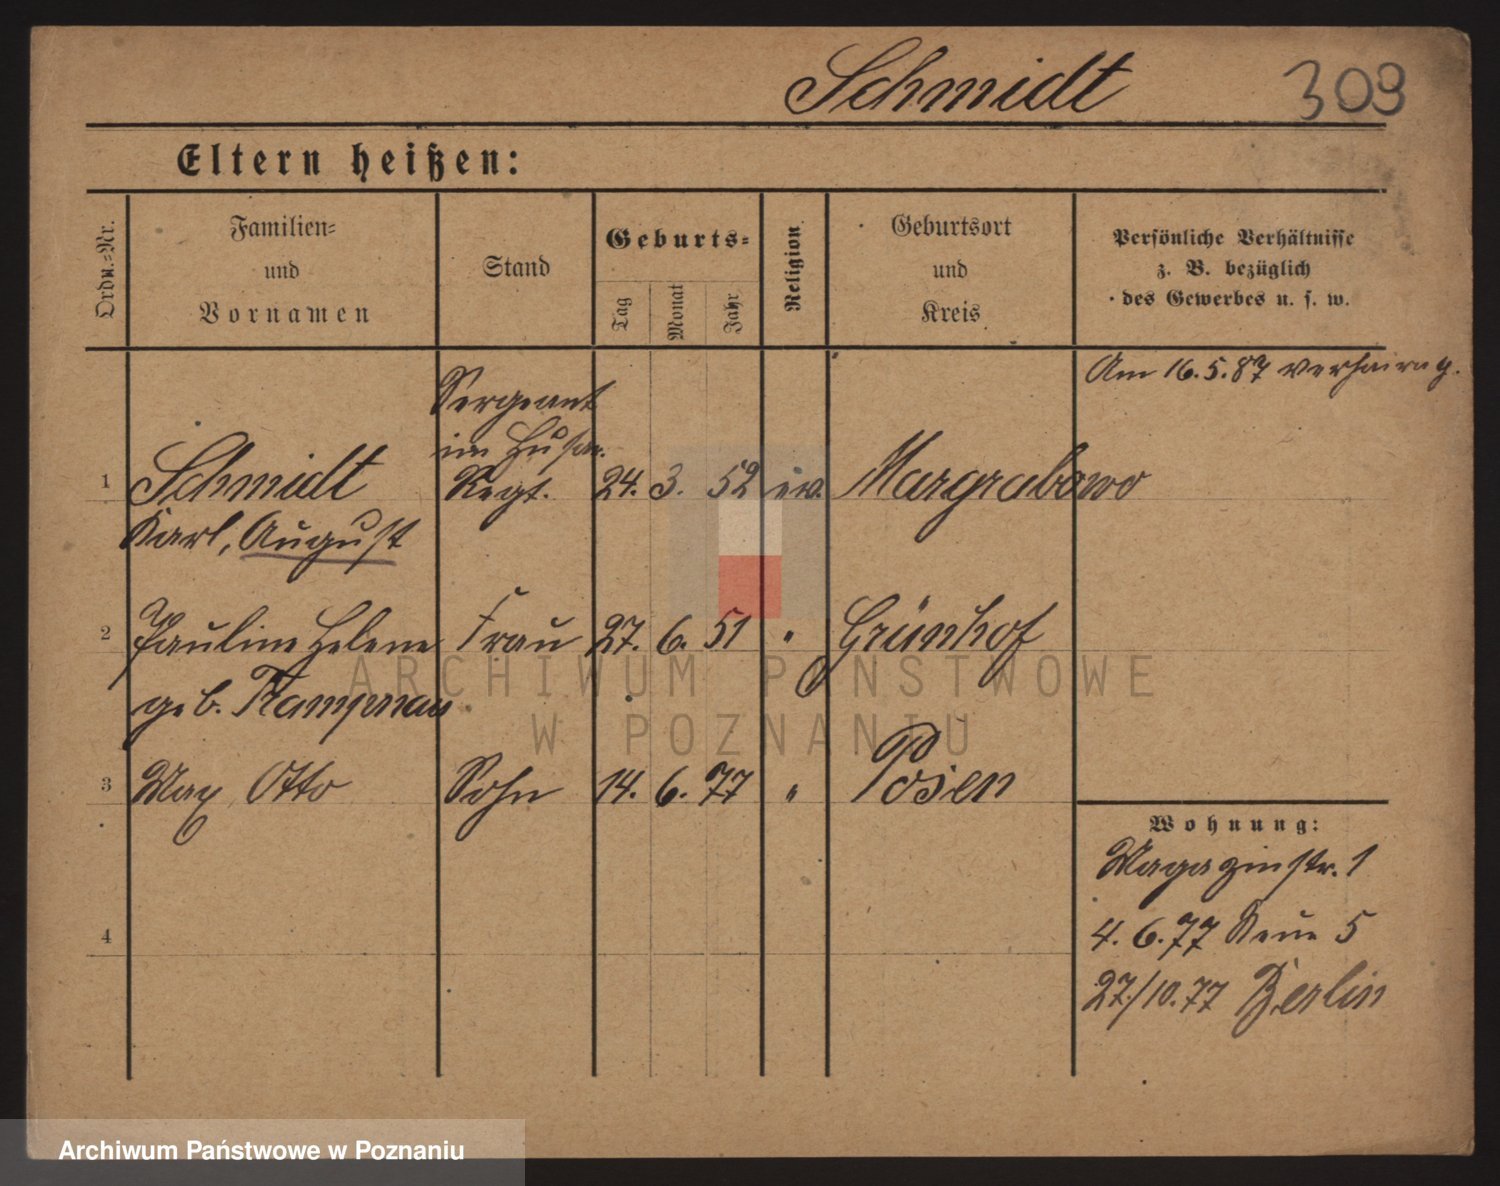 Schmidt 309
Eltern heißen:
Ordn.-Nr.
Familien-
und
Vornamen
Stand
Geburts-
Tag
Monat
Jahr
Religion
Geburtsort
und
Kreis
Persönliche Verhältnisse
z. B. bezüglich
des Gewerbes u. s. w.
Am 16.5.87
Sergeant
im Husar.
1 Schmidt Regt. 24. 3. 52 ev. Margrabowo
Karl, August
2 Pauline Helene Frau 27. 6. 51 " Grünhof
geb.
3 Max Otto Sohn 14. 6. 77 " Posen
Wohnung:
Magazinstr. 1
4. 6. 77 Neue 5
4
27/10. 77 Berlin
ARCHIWUM PAŃSTWOWE
W POZNANIU
Archiwum Państwowe w Poznaniu